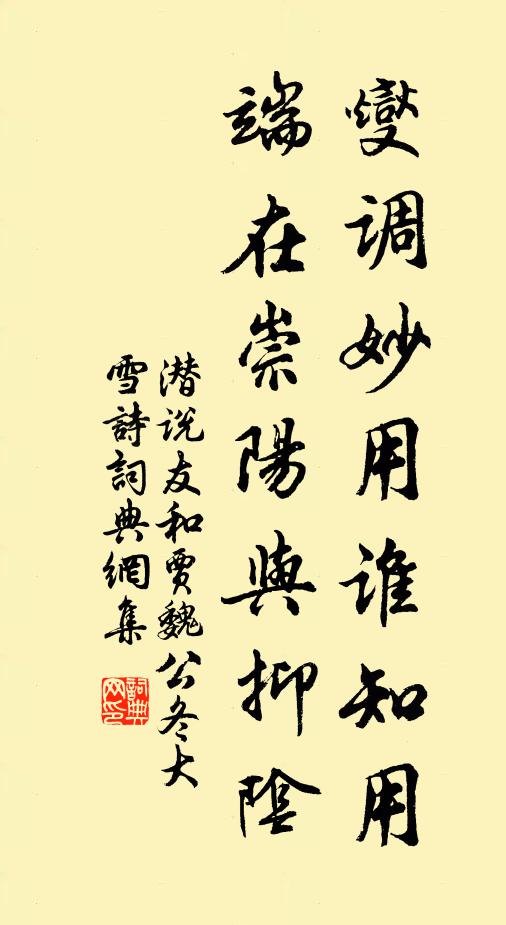 燮调妙用谁知用
端在崇陽與抑陰
潜说友和贾魏公冬大
雪詩詞典網集
詞典网印